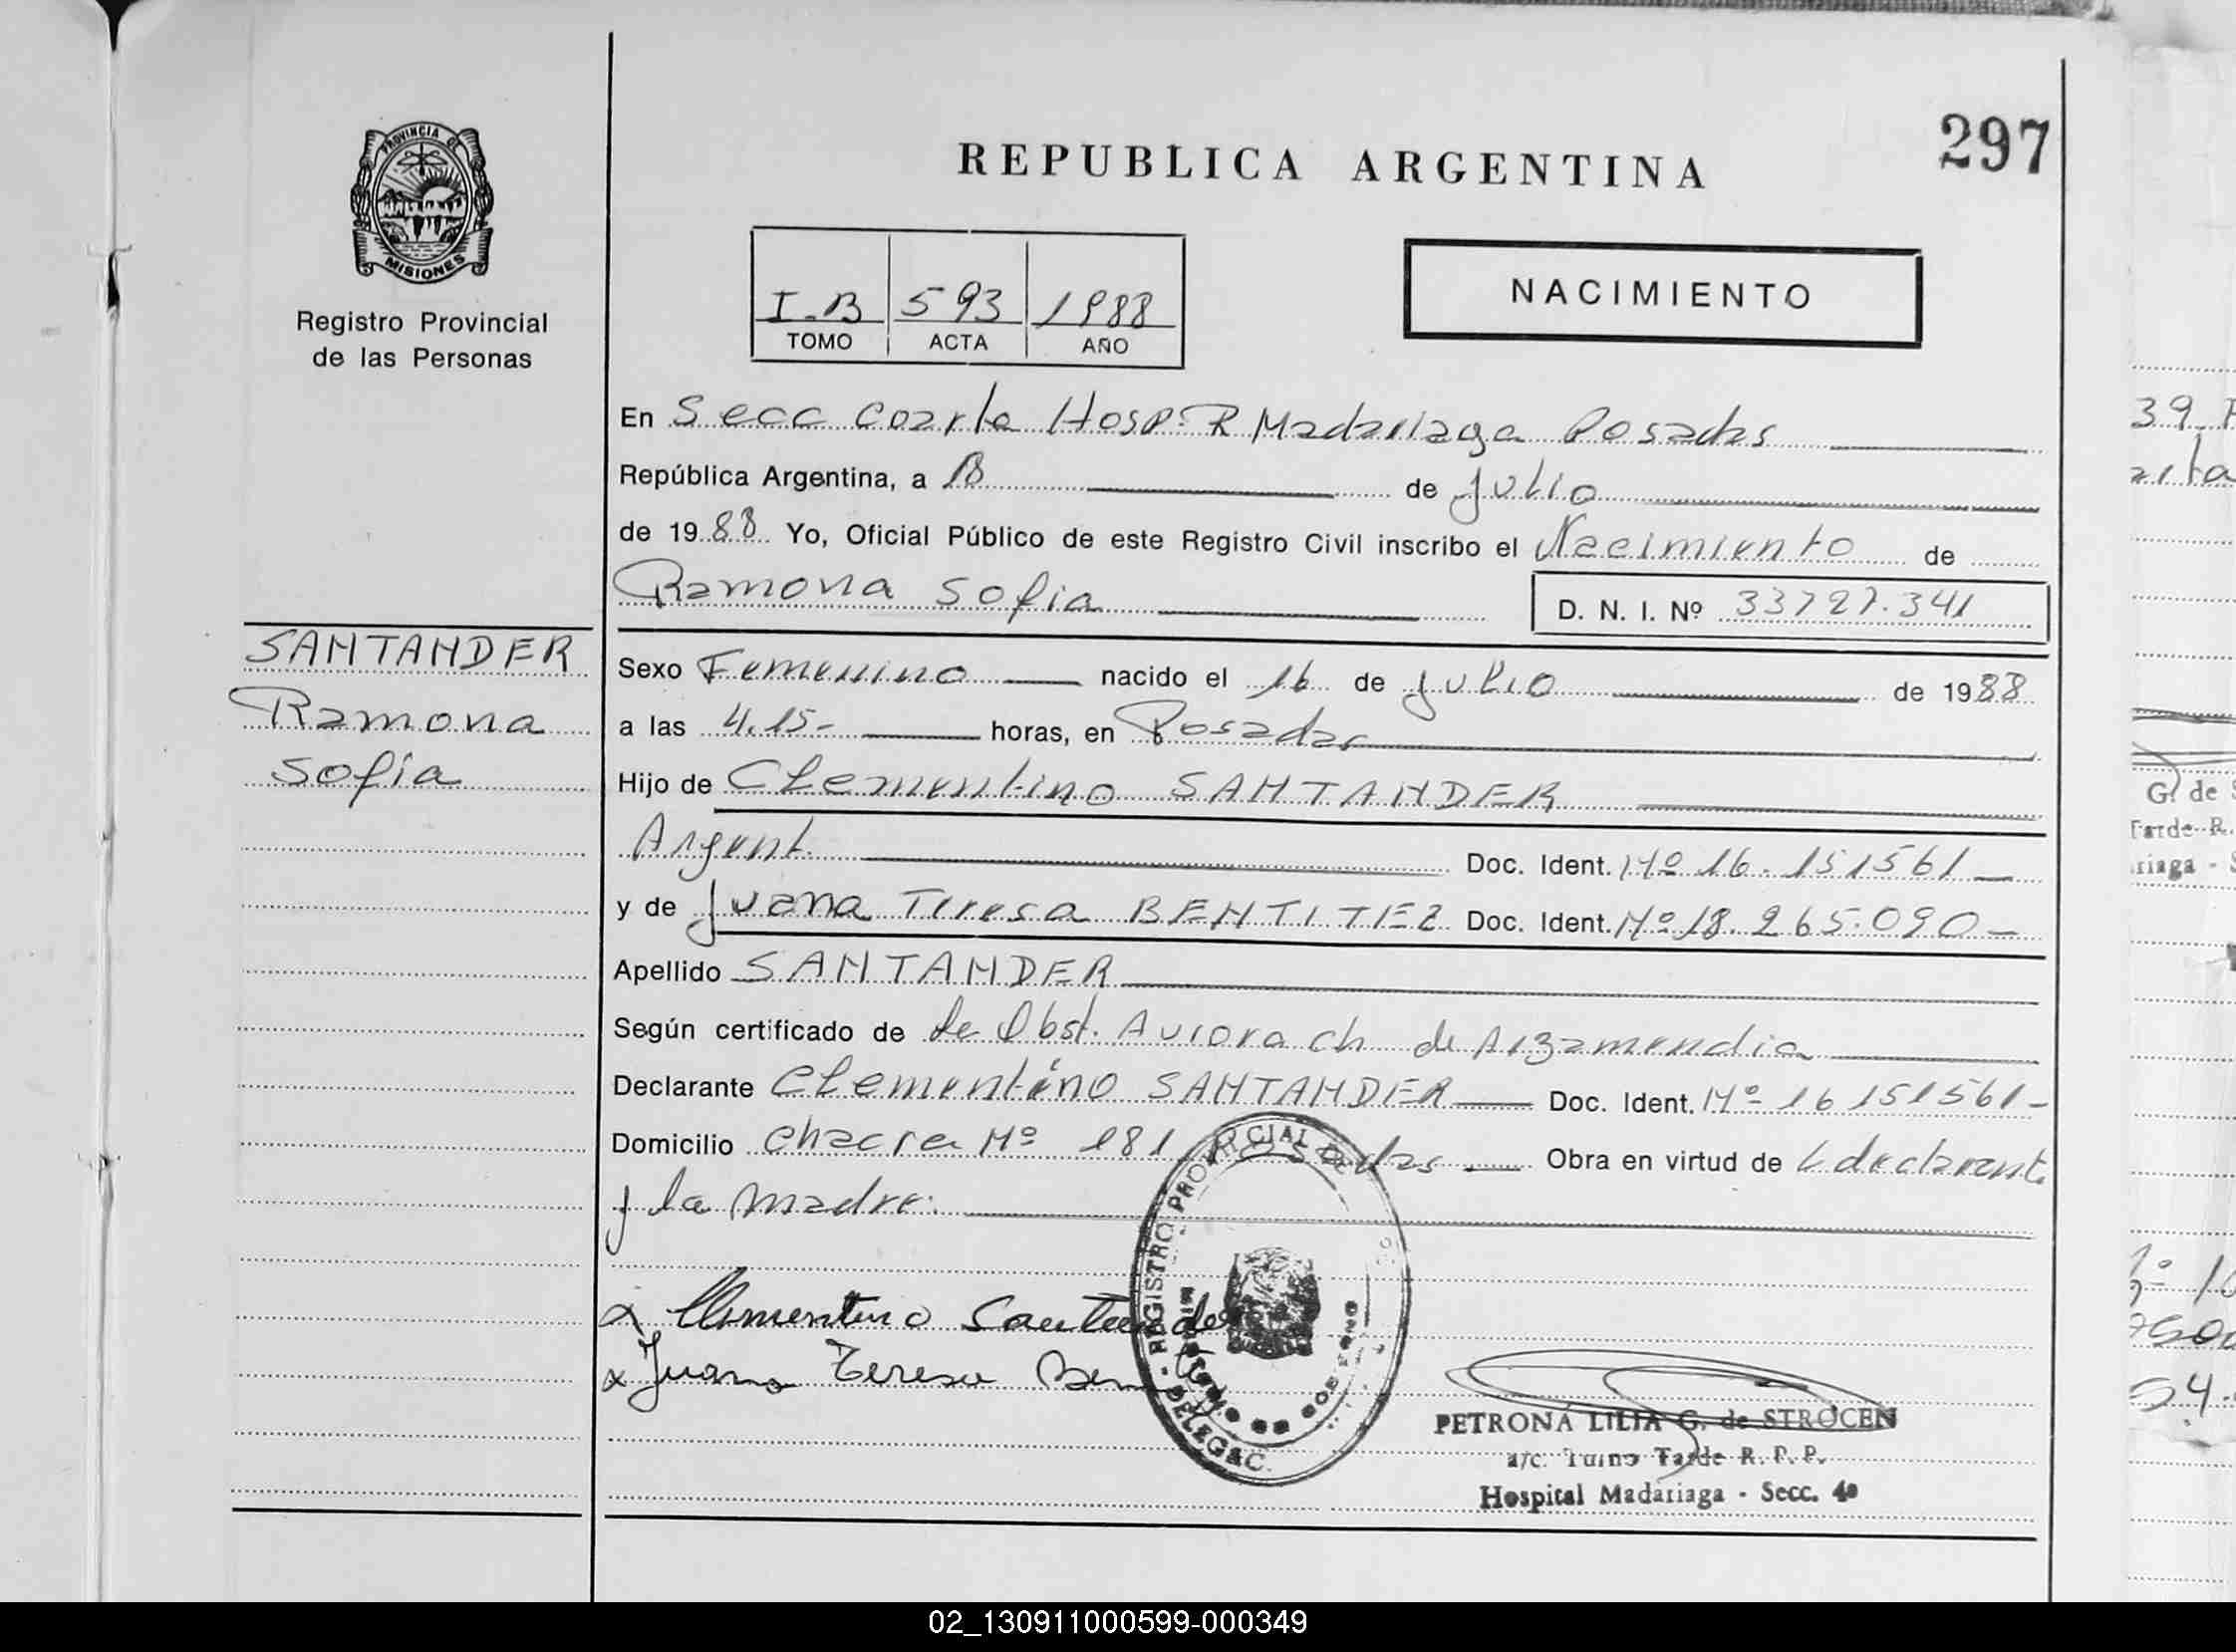 PROVINCIA DE
MISIONES
Registro Provincial
de las Personas
SANTANDER
Ramona
Sofia
297
REPUBLICA ARGENTINA
I-B 593 1988
TOMO ACTA AÑO
NACIMIENTO
En Secc Cuarta Hosp. R Madariaga Posadas
República Argentina, a 18 de Julio
de 1988 Yo, Oficial Público de este Registro Civil inscribo el Nacimiento de
Ramona Sofia D. N. I. Nº 33727.341
Sexo Femenino nacido el 16 de Julio de 1988
a las 4.15- horas, en Posadas
Hijo de Clementino SANTANDER
Argent. Doc. Ident. Nº 16.151561-
y de Juana Teresa BENTITEZ Doc. Ident. Nº 18.265.090-
Apellido SANTANDER
Según certificado de de Obst. Aurora Ch de Arzamendia
Declarante Clementino SANTANDER Doc. Ident. Nº 16151561-
Domicilio Chacra Nº 181 Posadas - Obra en virtud de L declarant.
y la Madre.
x Clementino Santander
x Juana Teresa
REGISTRO PROVINCIAL DE
DELEGAC.
PETRONA LILIA G. de STROCEN
a/c. Turno Tarde R. P. P.
Hospital Madariaga - Secc. 4ª
39
G. de
Tarde R.
riaga -
02_130911000599-000349